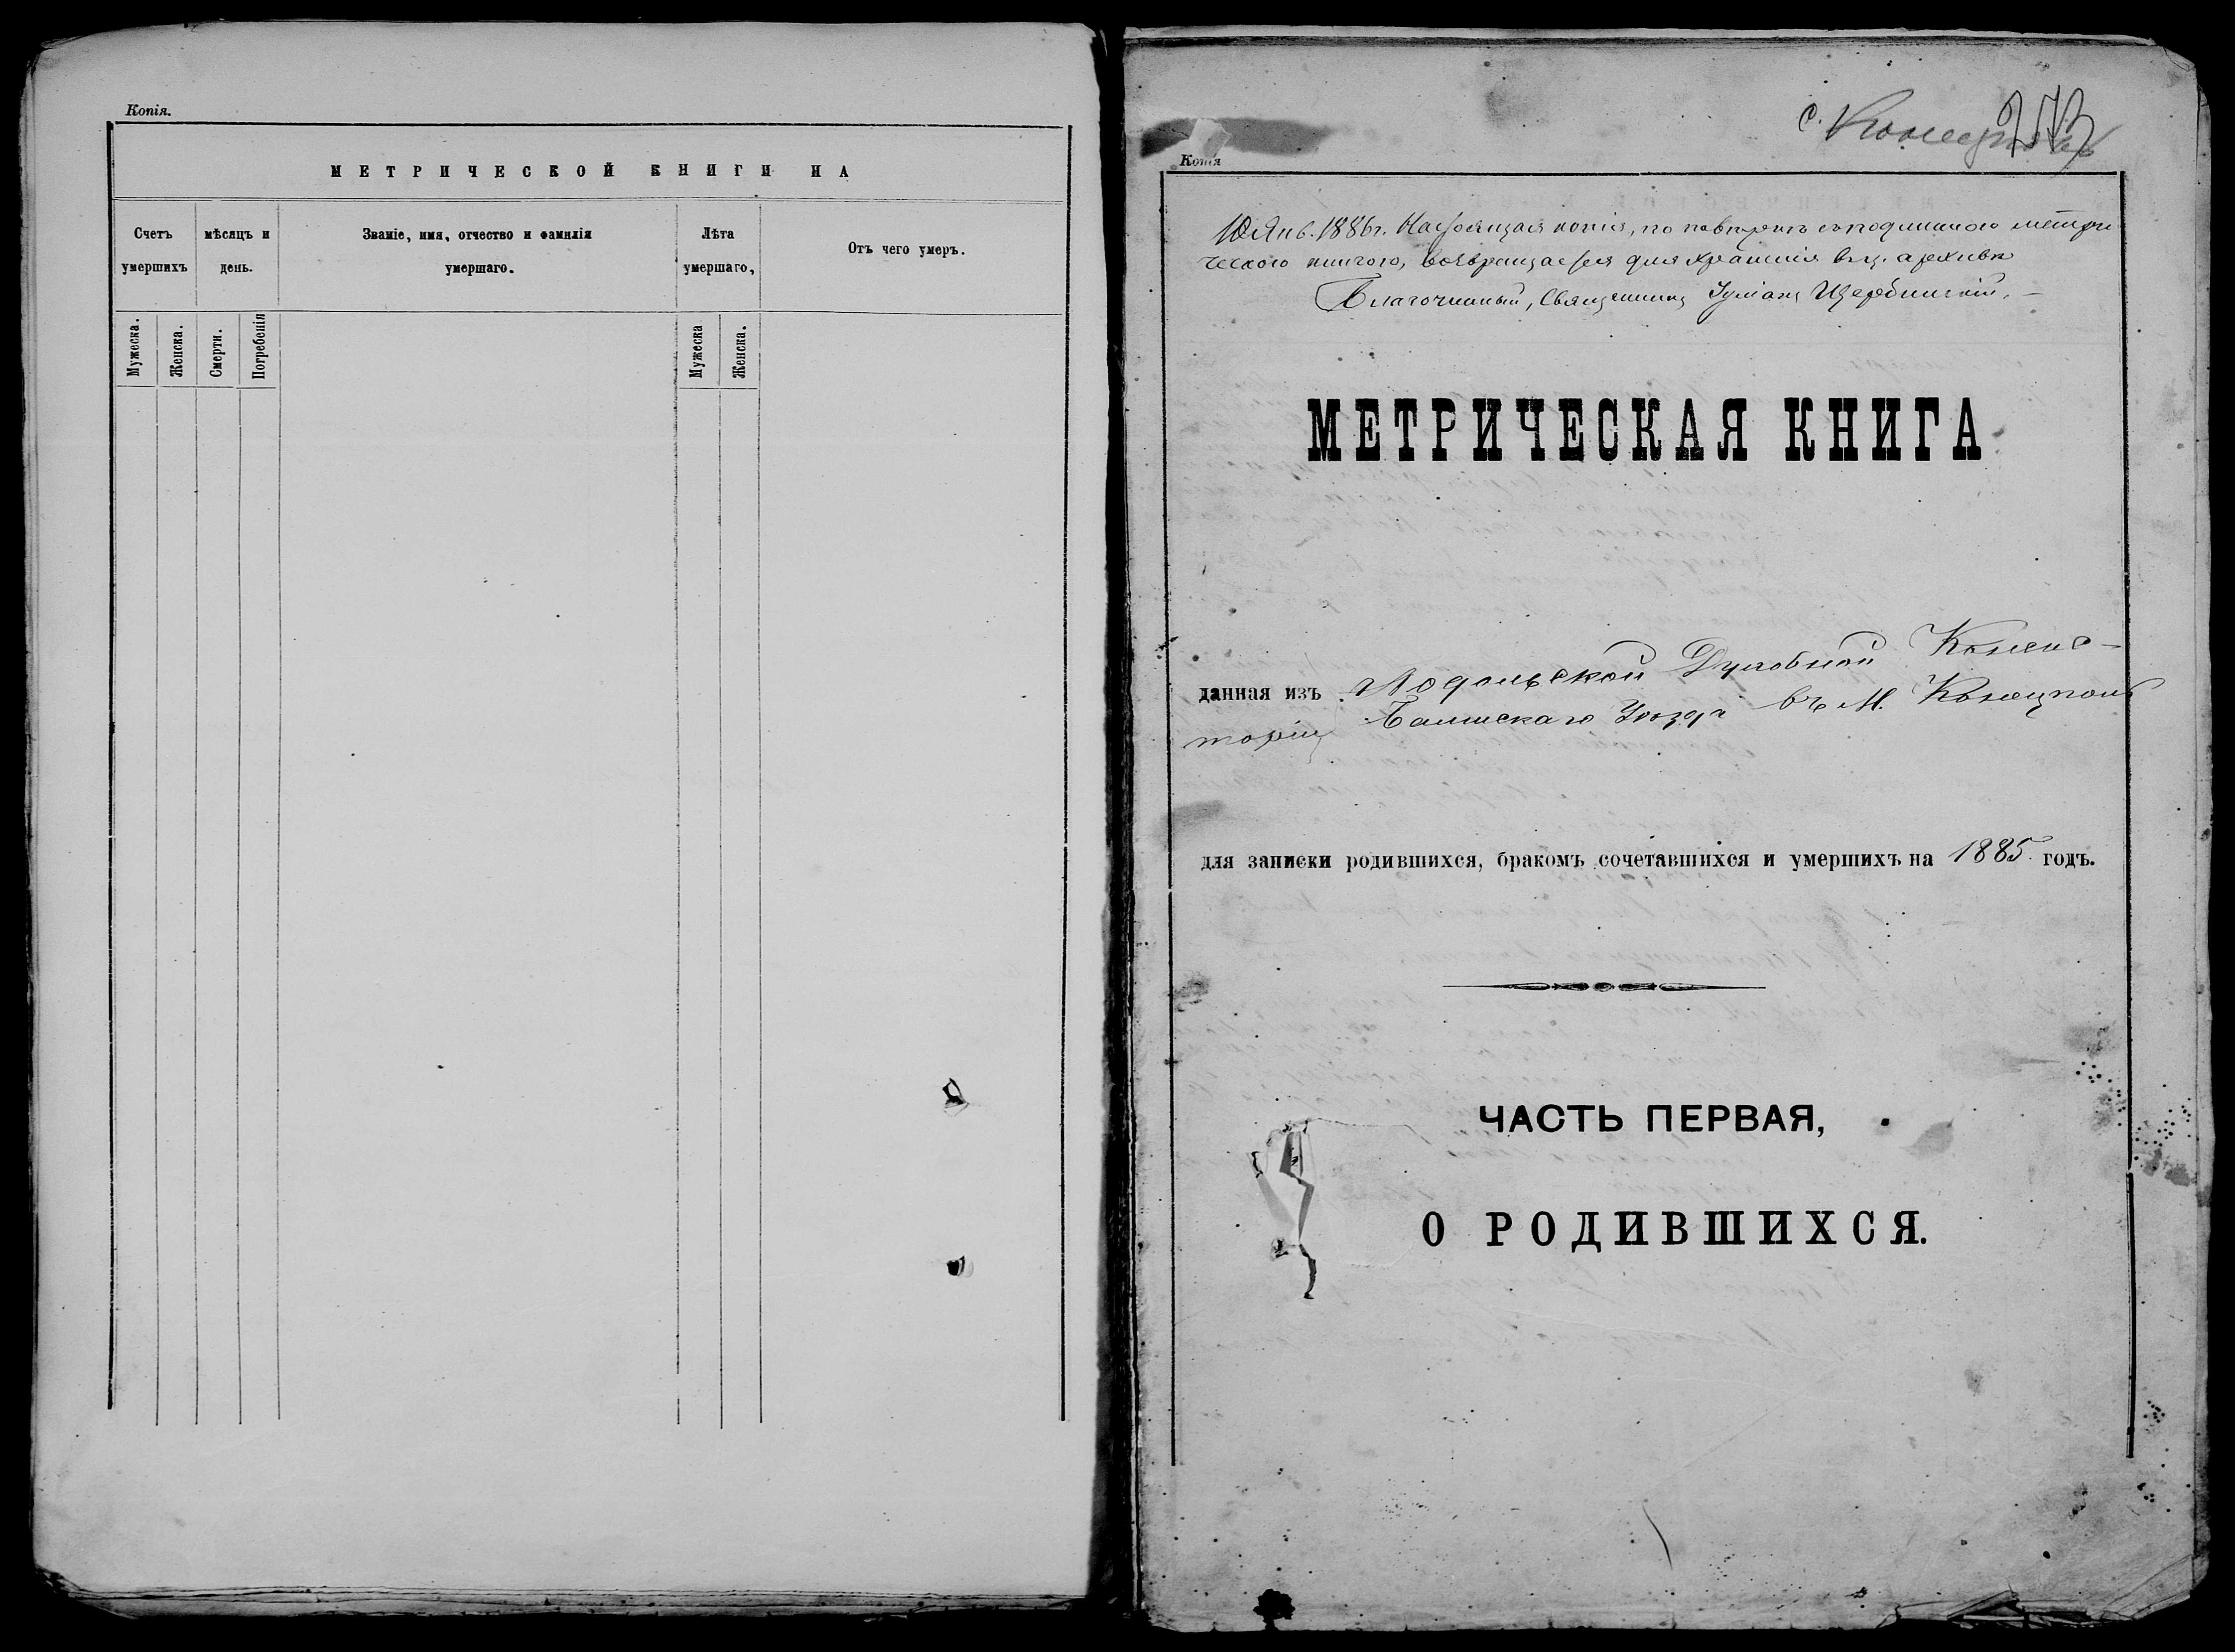 Копія.
МЕТРИЧЕСКОЙ КНИГИ НА
Счетъ умершихъ
мѣсяцъ и день.
Званіе, имя, отчество и фамилія умершаго.
Лѣта умершаго,
Отъ чего умеръ.
Мужеска.
Женска.
Смерти.
Погребенія
Мужеска
Женска.
с.
253
Копія
10 Янв. 1886 г. Настоящая копія, по повѣркѣ съ подлинною метри
ческою книгою, возвращается для храненія въ ц. архивѣ
Благочинный, Священникъ Іуліанъ Щербинскій.
МЕТРИЧЕСКАЯ КНИГА
данная изъ Подольской Духовной Консис-
торіи Балтскаго Уѣзда въ М.
для записки родившихся, бракомъ сочетавшихся и умершихъ на 1885 годъ.
ЧАСТЬ ПЕРВАЯ,
О РОДИВШИХСЯ.